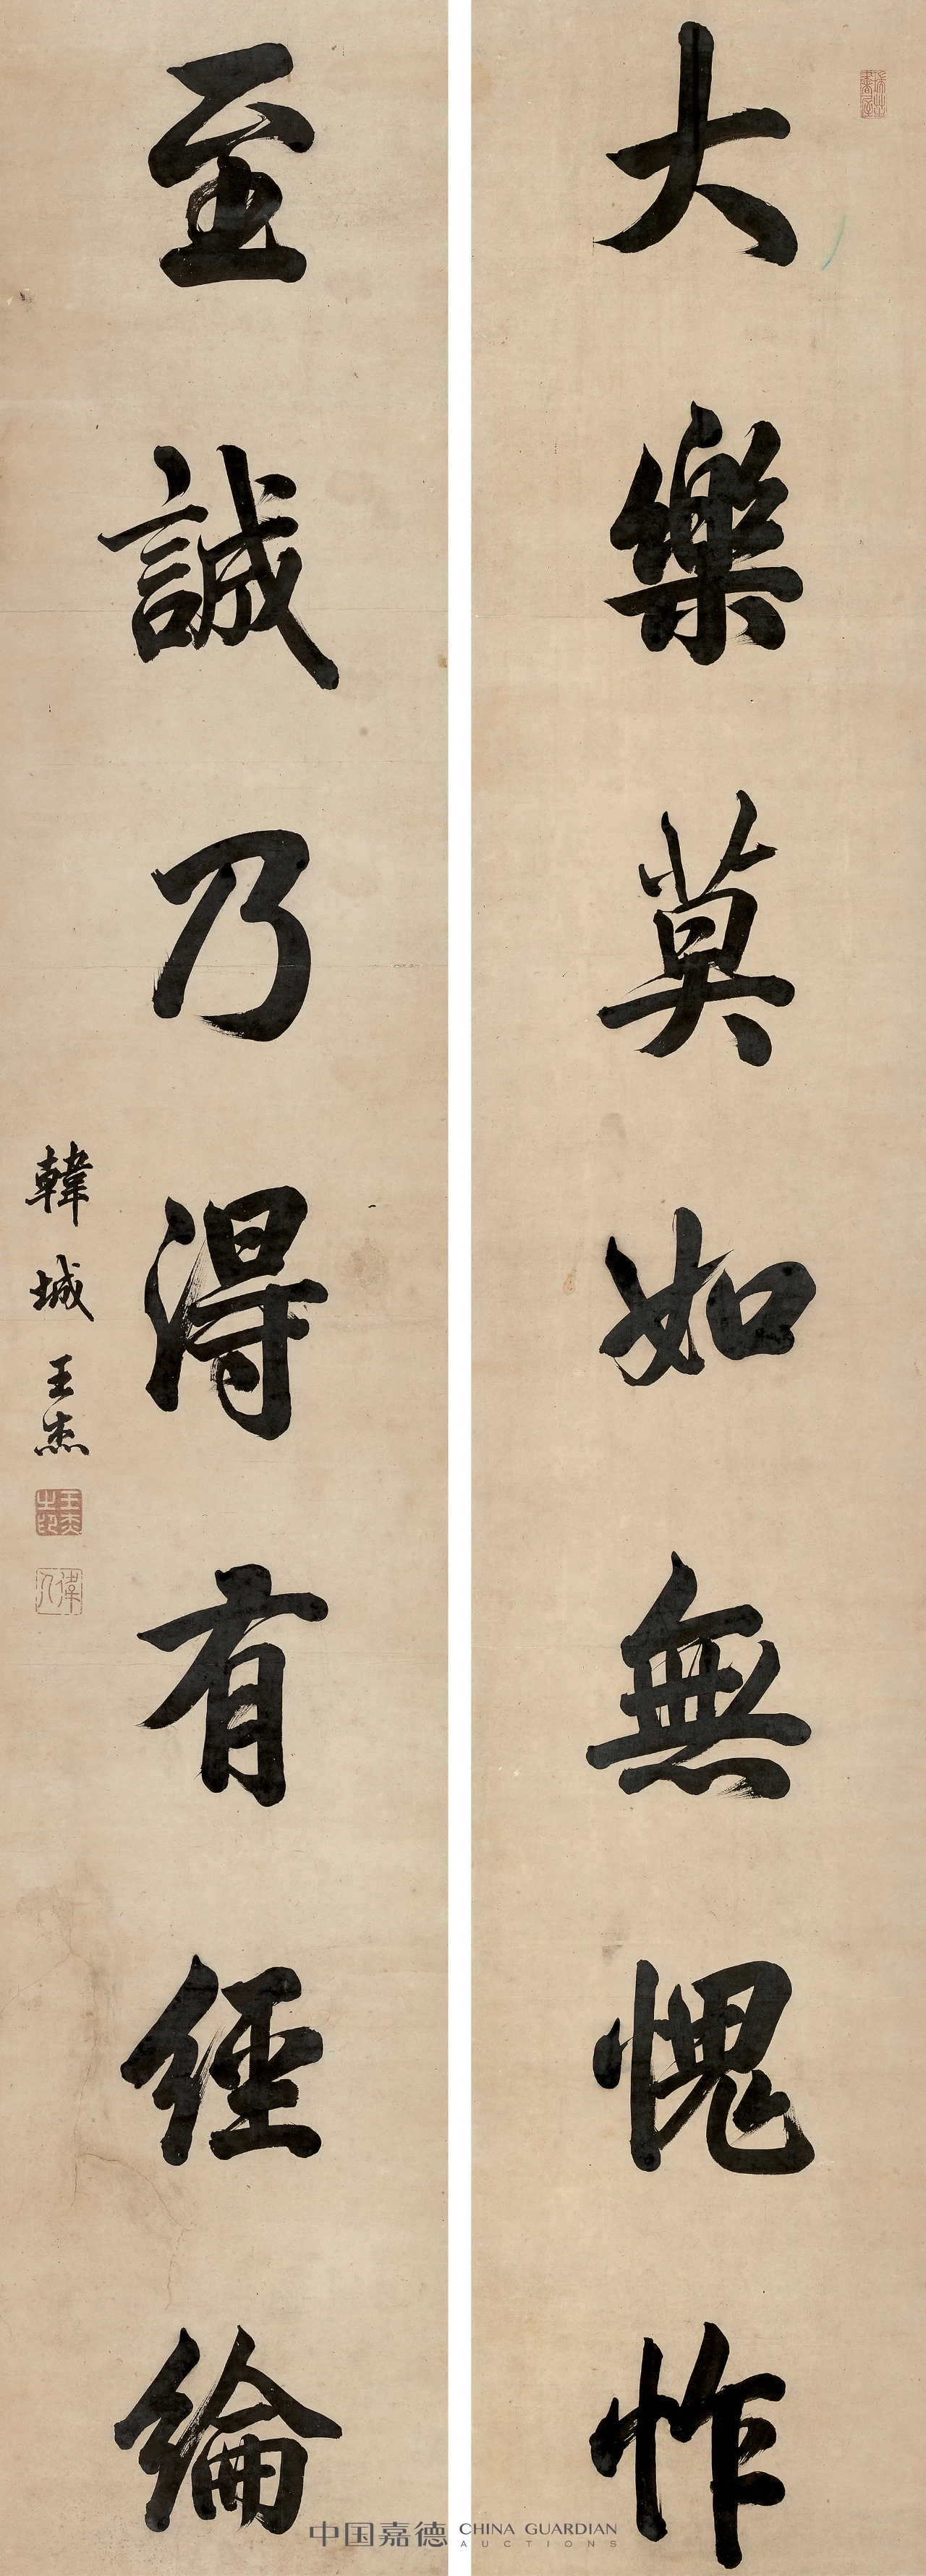 大樂莫如無愧怍
至誠乃得有經綸
韓城王杰
王杰之印
偉人
中国嘉德 CHINA GUARDIAN
AUCTIONS